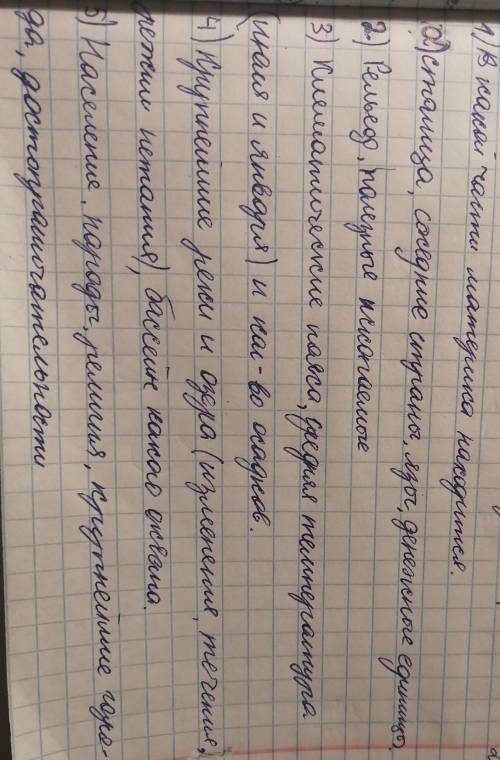 1) В какой части материка находится.
столица, соседние страны, язы, денежные единицы.
2) Рельеф, полезные ископаемые
3) Климатические пояса, средняя температура
(июля и января) и кол-во осадков.
4) Крупнейшие реки и озера (изменения, течения,
режим питания), бассейн какого океана.
5) Население, народы, религия, крупнейшие горо-
да, достопримечательности